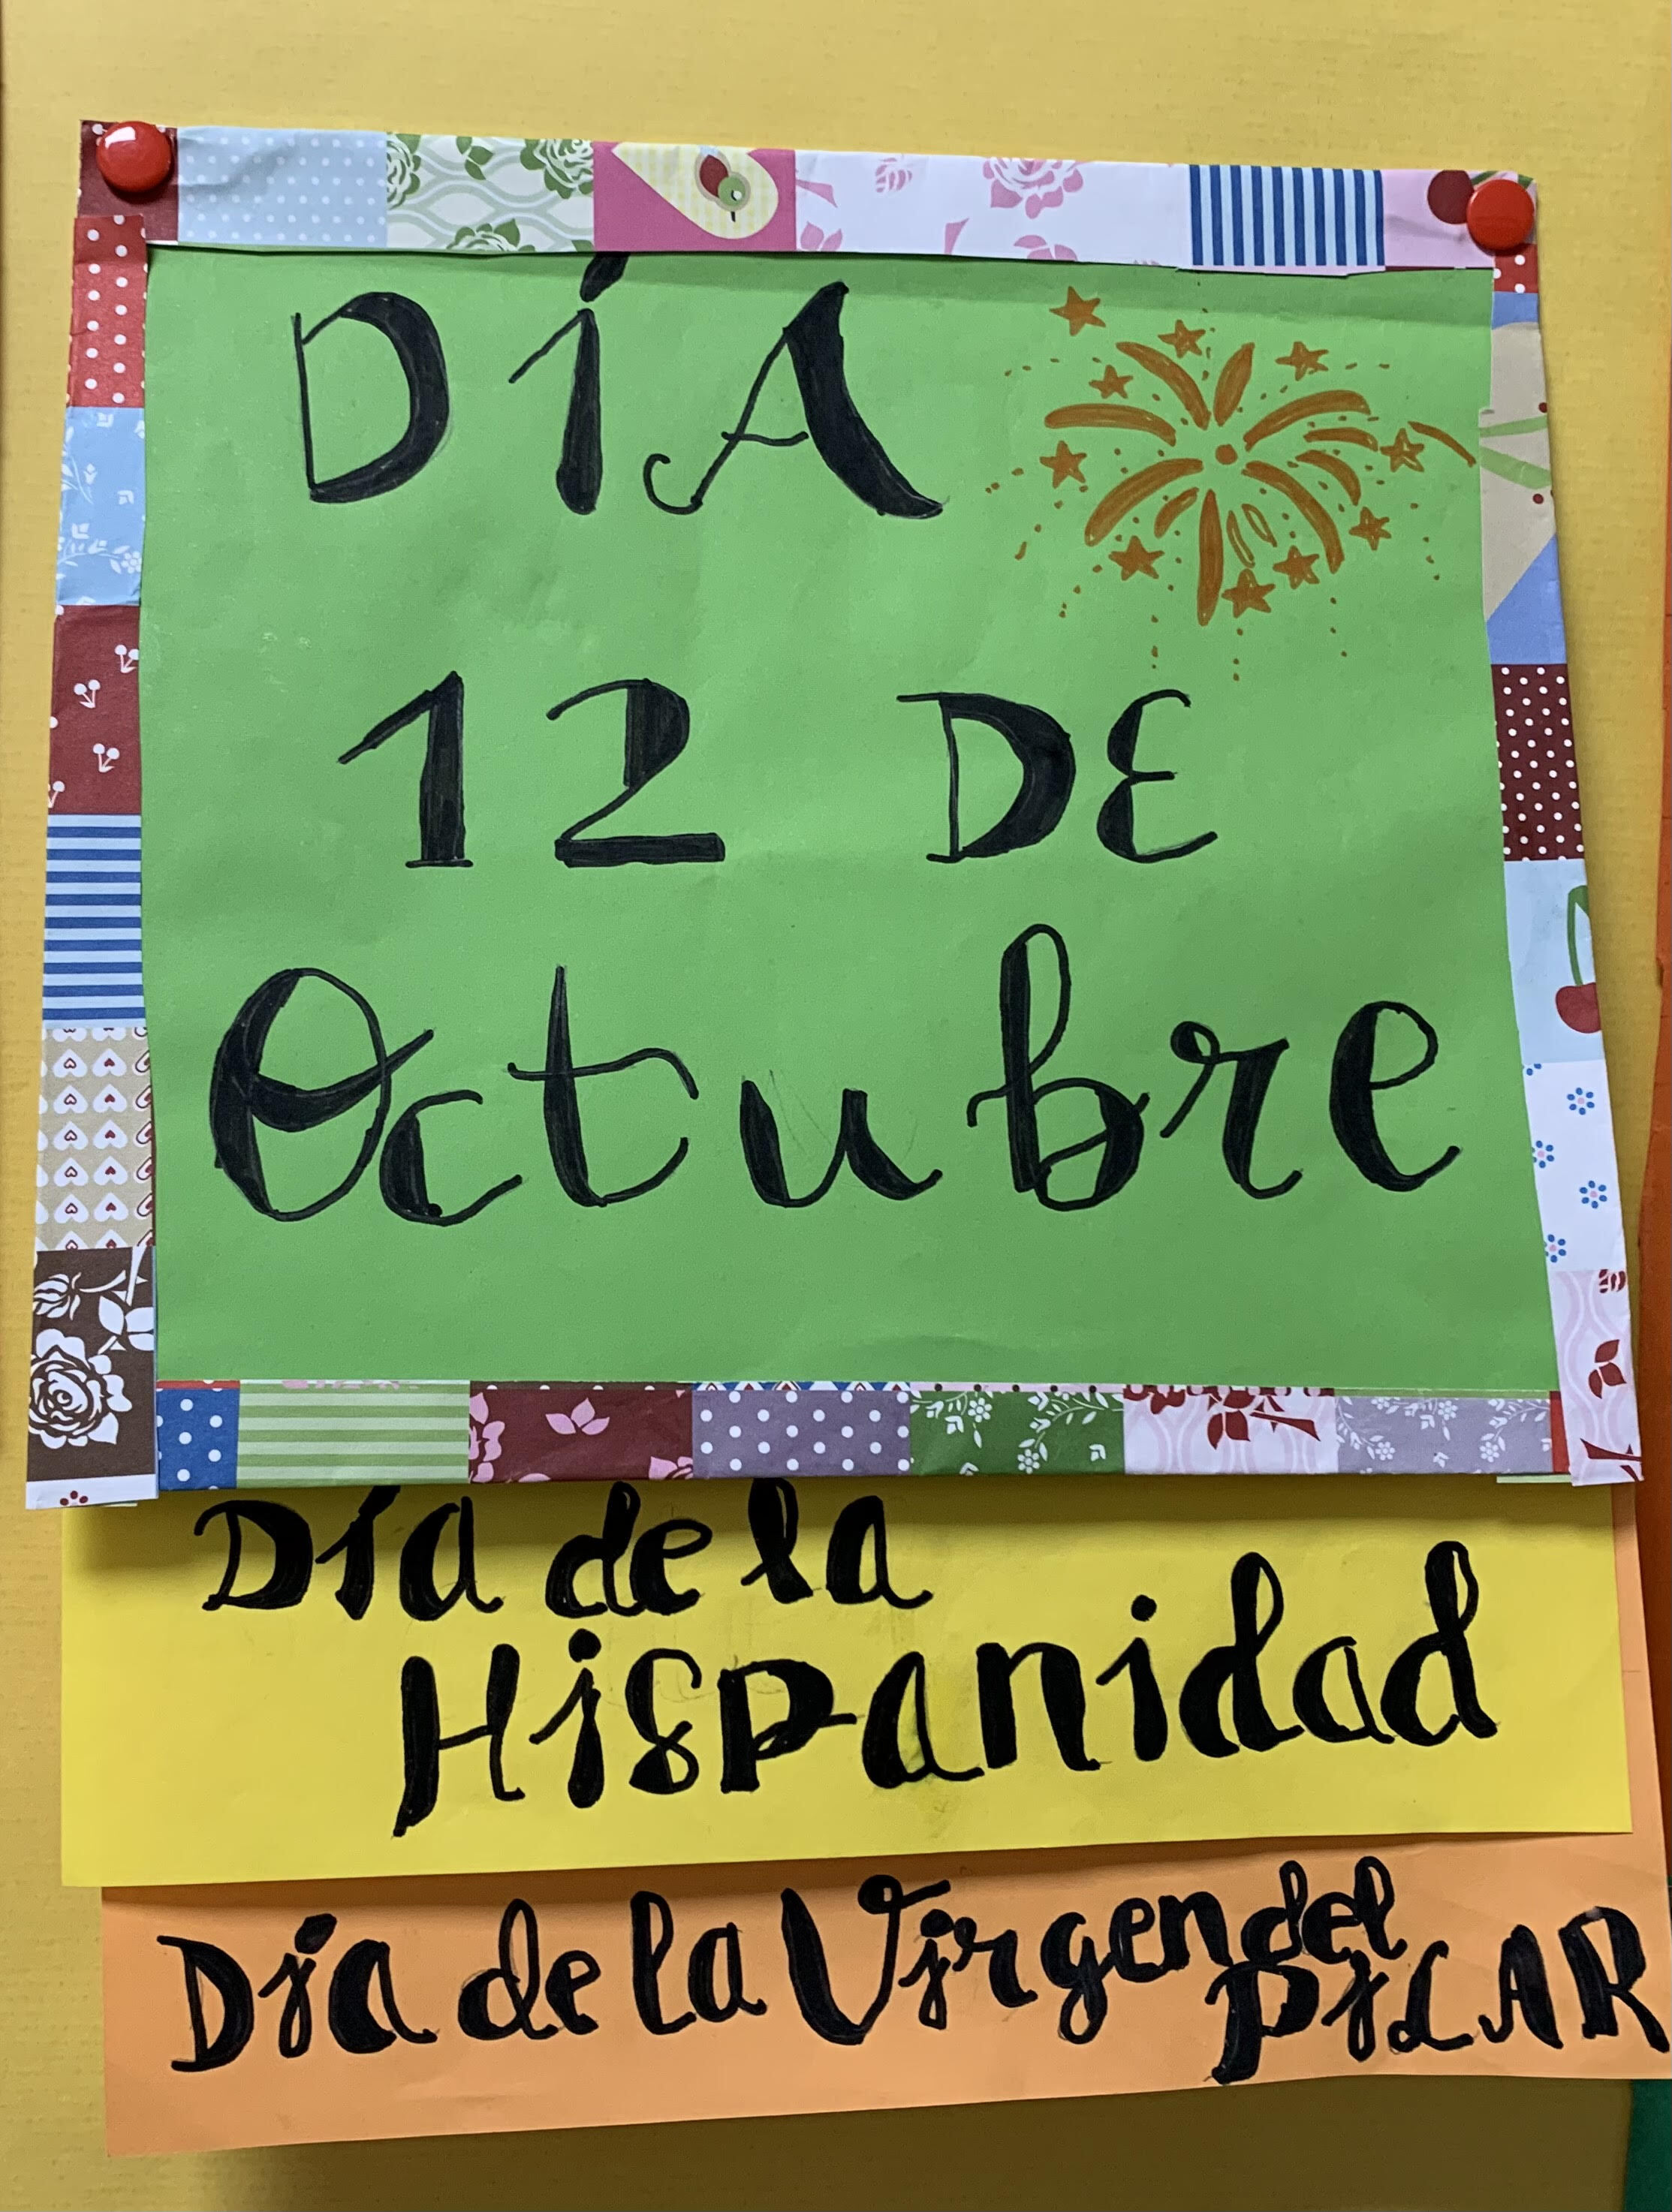 DÍA
12 DE
Octubre
Día de la
Hispanidad
Día de la Virgen del
PILAR